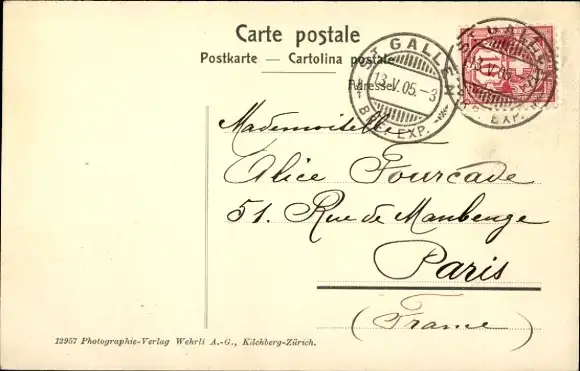 Carte postale
Postkarte — Cartolina postale
Adresse
ST GALLEN
13.V.05.-3
BRF. EXP.
ST GALLEN
13.V.05
BRF. EXP.
Mademoiselle
Alice Fourcade
51. Rue de Maubenge
Paris
(France)
12957 Photographie-Verlag Wehrli A.-G., Kilchberg-Zürich.